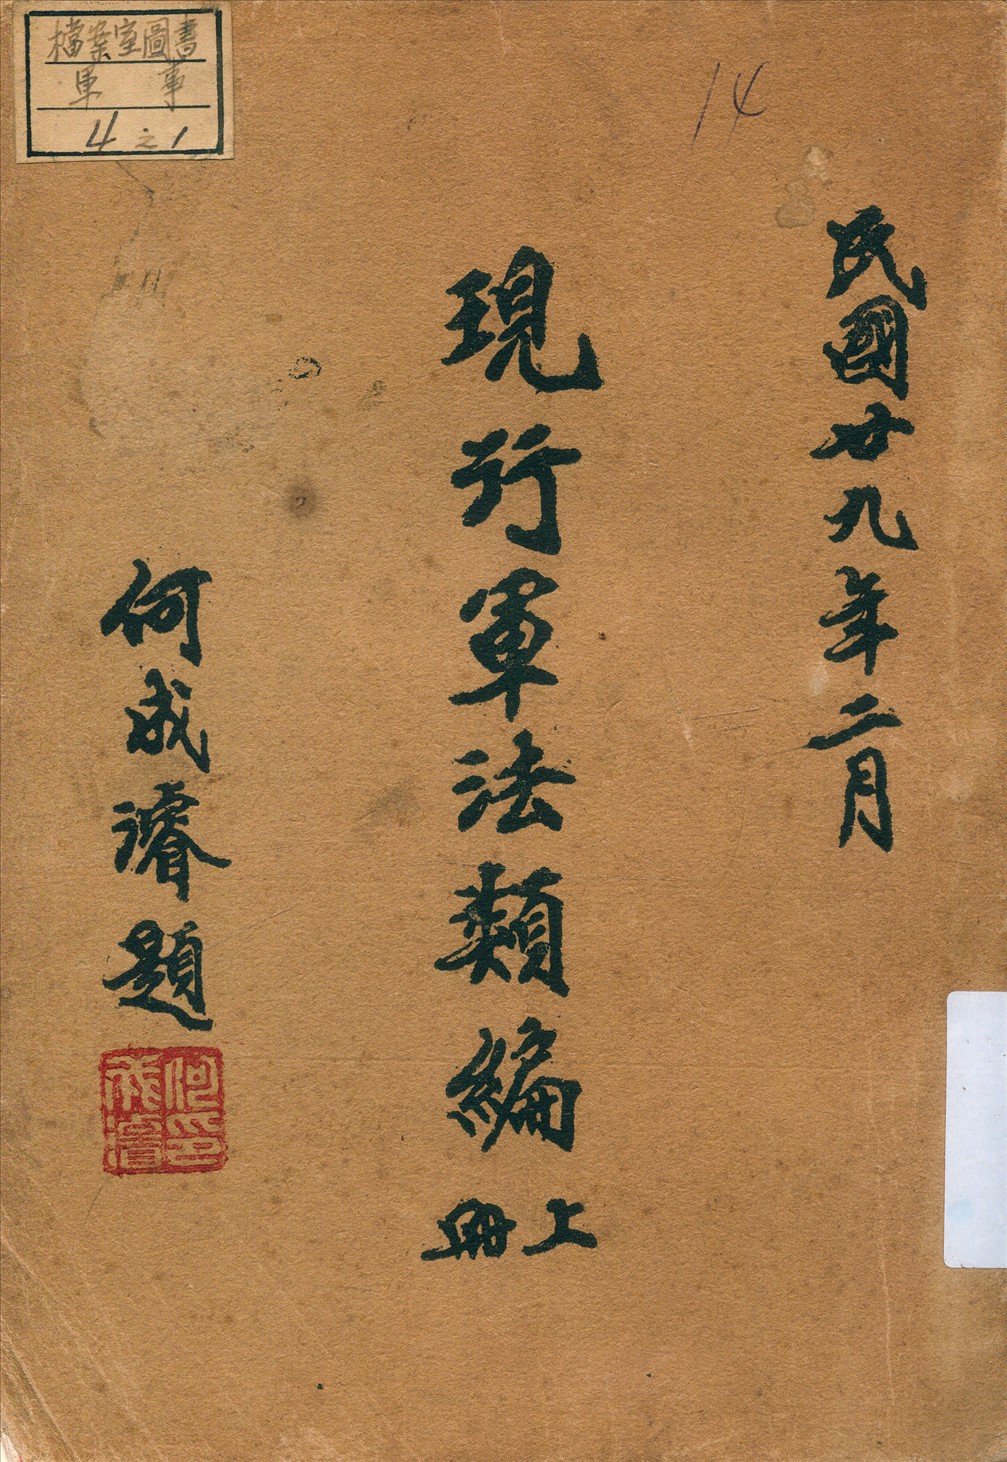 檔案室圖書
軍事
4之1
14
民國廿九年二月
現行軍法類編
上冊
何成濬題
何成濬印